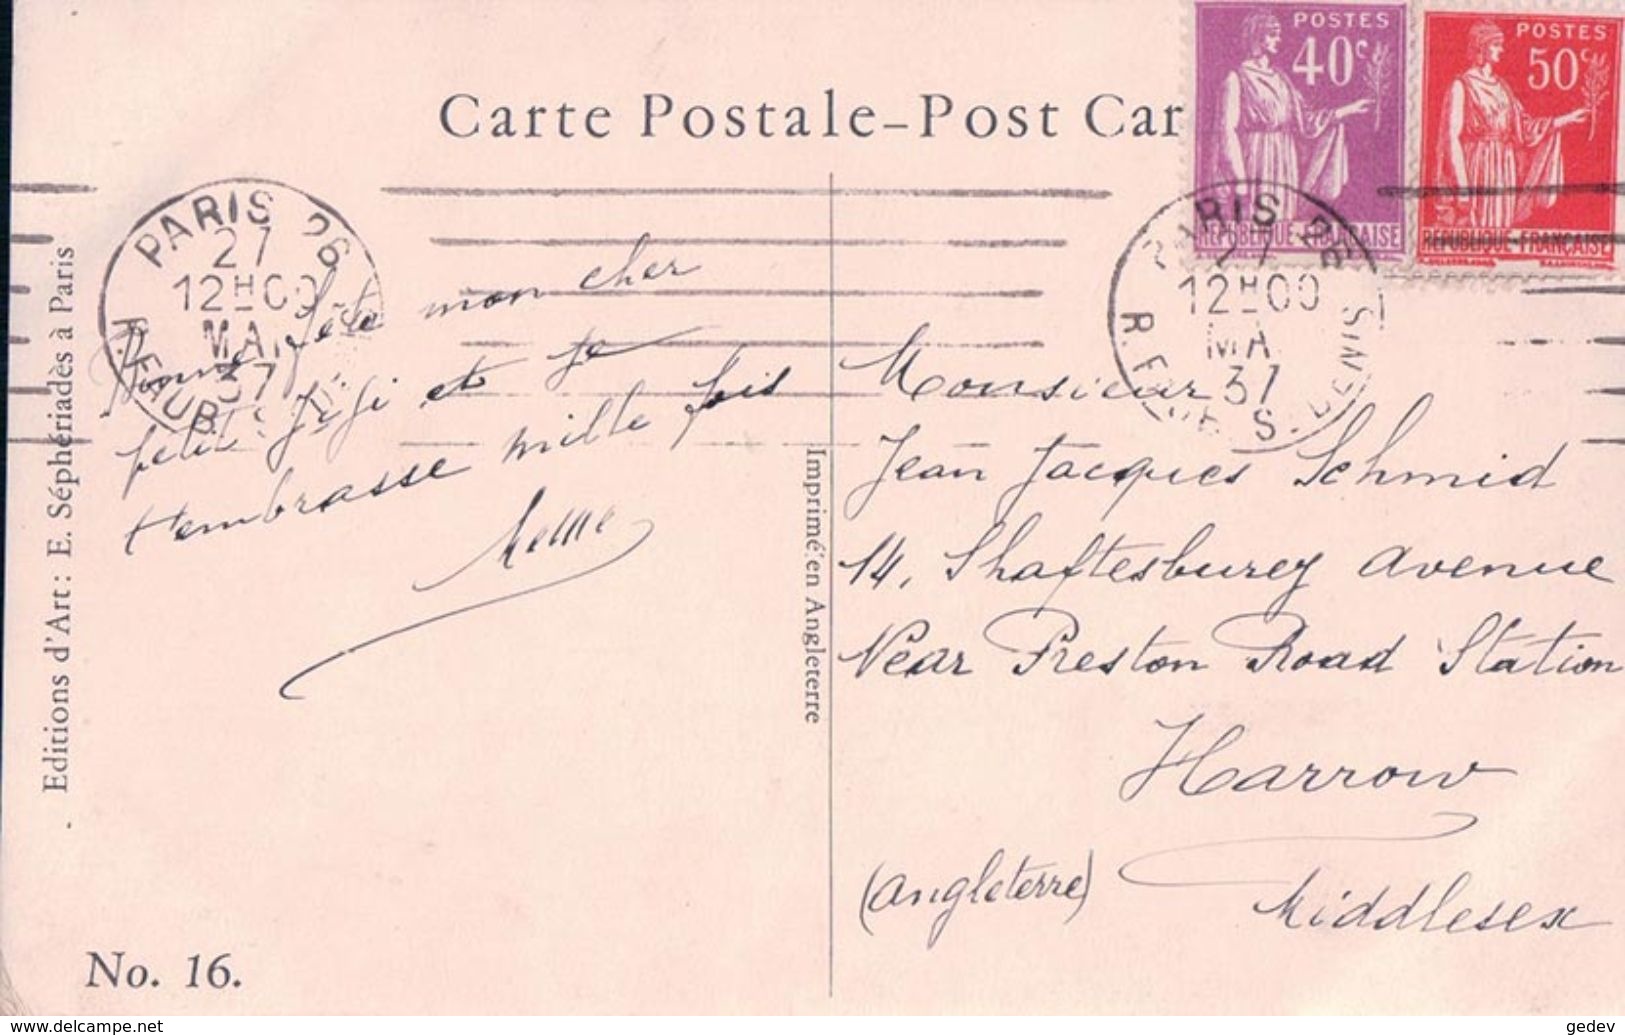 Carte Postale – Post Car
POSTES
40c
REPUBLIQUE-FRANÇAISE
POSTES
50c
REPUBLIQUE-FRANÇAISE
PARIS 26
27
12H00
MAI
37
PARIS 26
27
12H00
MA
37
Bonne fête mon cher
petit Jiji et je
t'embrasse mille fois
Monsieur
Jean Jacques Schmid
14, Shaftesburey Avenue
Near Preston Road Station
Harrow
Middlesex
(Angleterre)
Editions d'Art: E. Séphériadès à Paris
Imprimé en Angleterre
No. 16.
www.delcampe.net
gedev